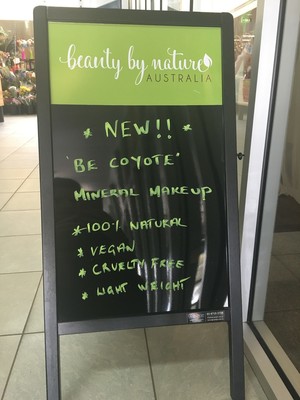 beauty by nature
AUSTRALIA
* NEW!! *
'BE COYOTE'
MINERAL MAKEUP
* 100% NATURAL
* VEGAN
* CRUELTY FREE
* LIGHT WEIGHT